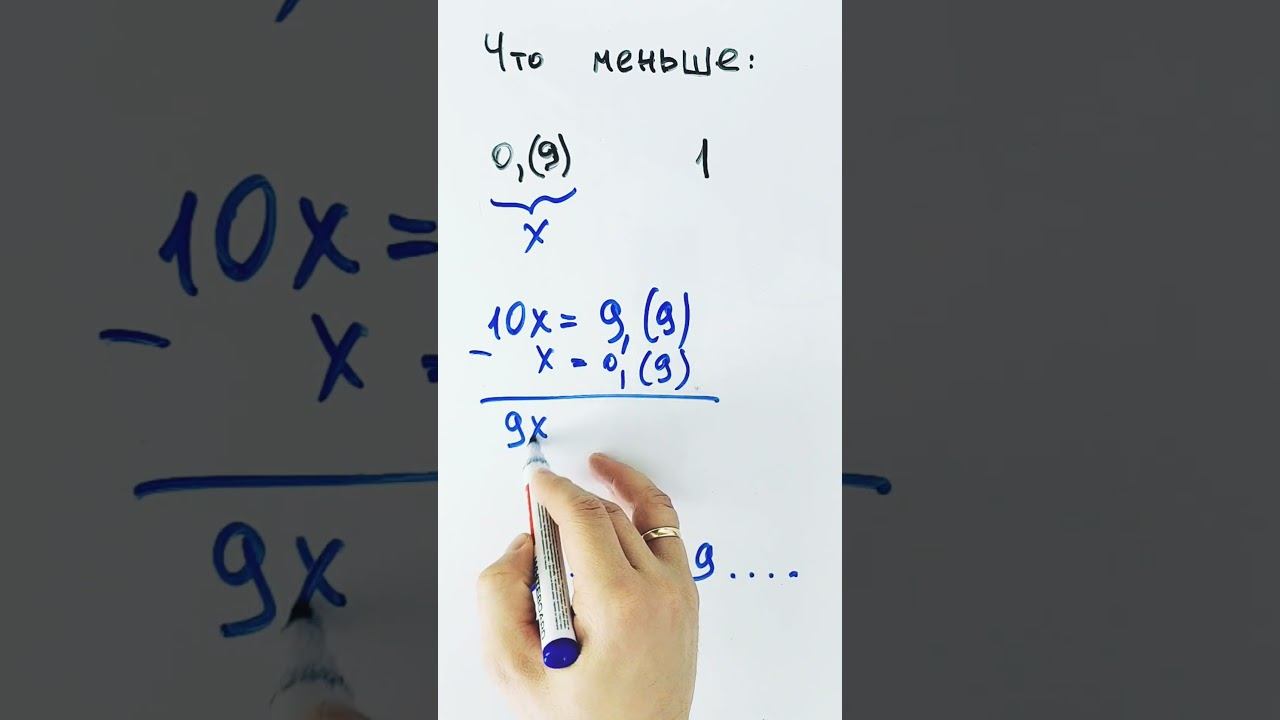 Что меньше:
0,(9) 1
x
10x = 9,(9)
- x = 0,(9)
9x
9....